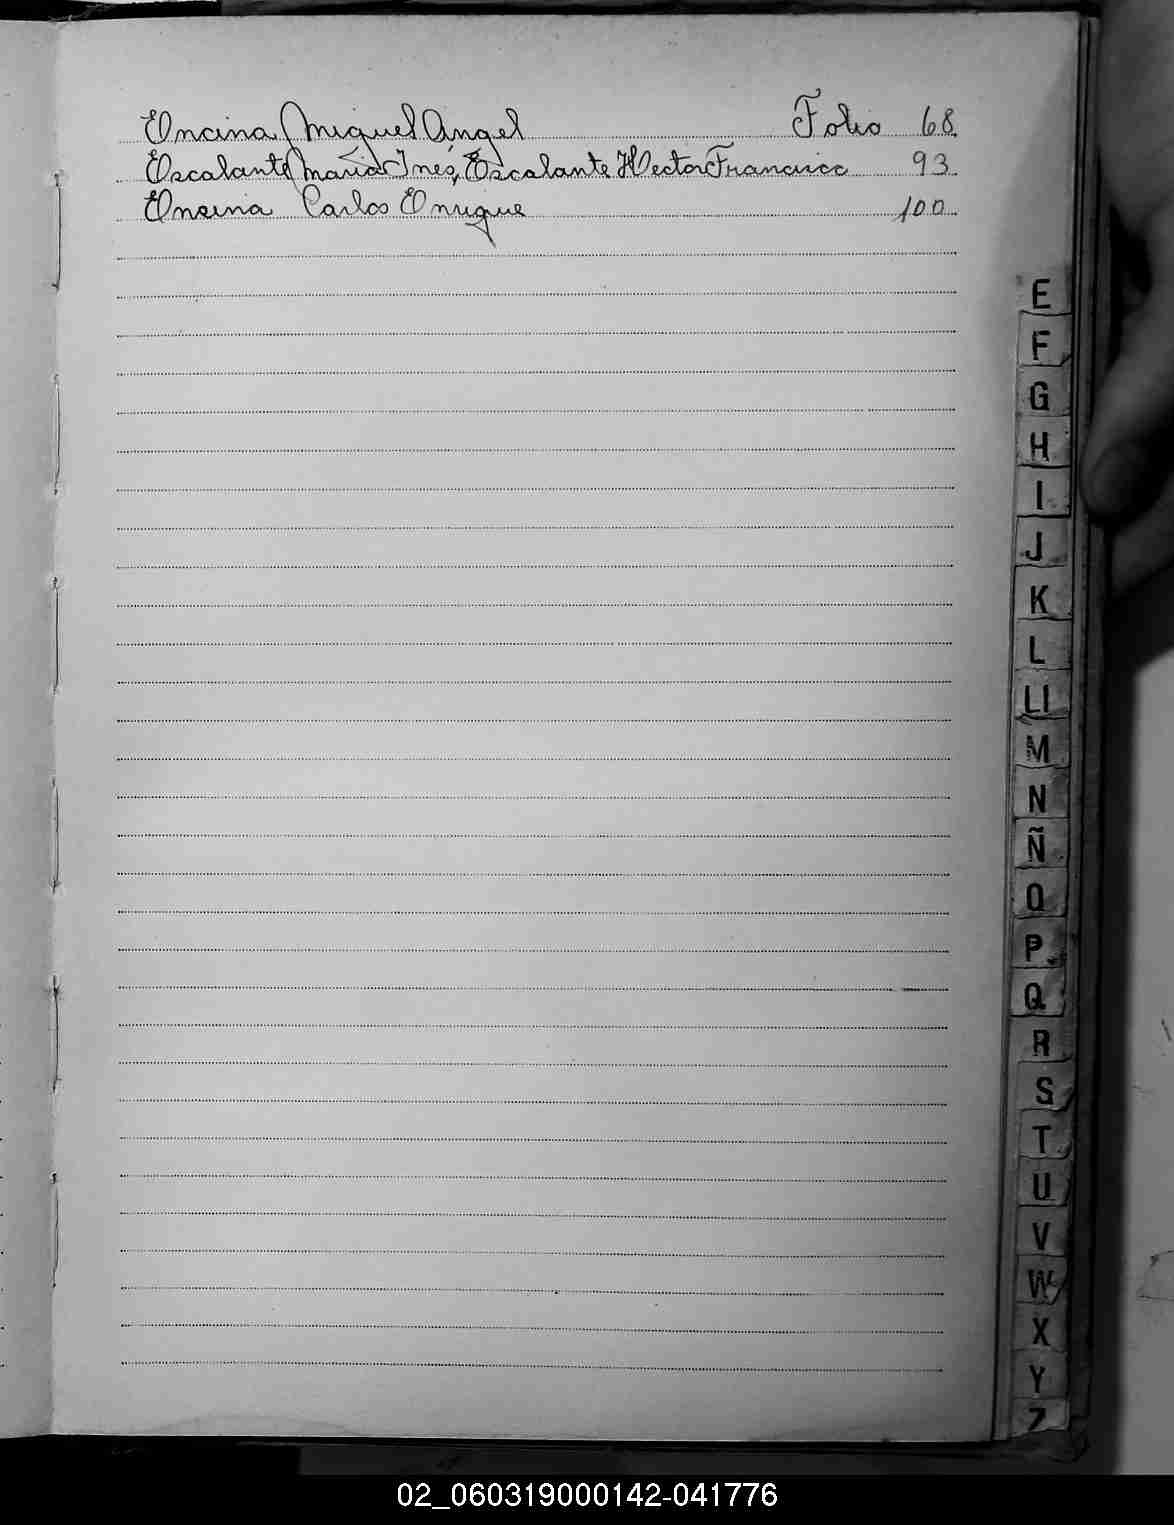 Encina Miguel Angel Folio 68
Escalante Maria Inés, Escalante Hector Francisco 93
Encina Carlos Enrique 100
E
F
G
H
I
J
K
L
Ll
M
N
Ñ
O
P
Q
R
S
T
U
V
W
X
Y
Z
02_060319000142-041776